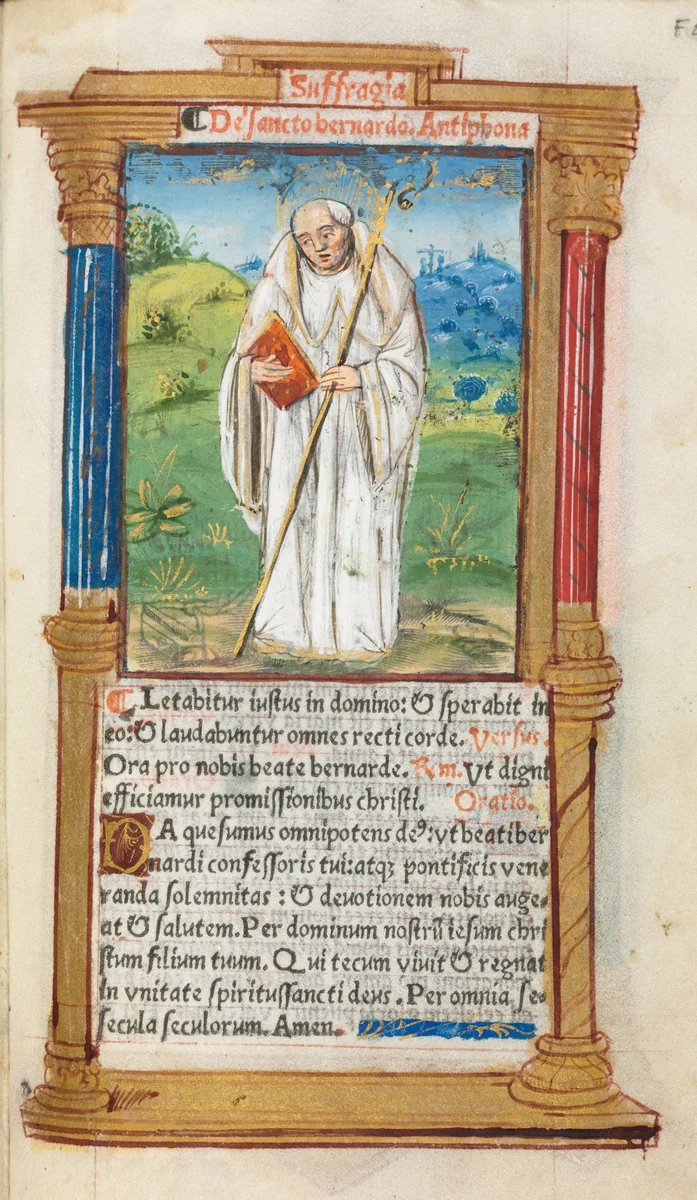 Suffragia
De sancto bernardo. Antiphona
Letabitur iustus in domino: & sperabit in
eo: & laudabuntur omnes recti corde. Versus.
Ora pro nobis beate bernarde. Rm. Vt digni
efficiamur promissionibus christi. Oratio.
DA quesumus omnipotens deꝰ: vt beati ber
nardi confessoris tui: atqꝫ pontificis vene
randa solemnitas : & deuotionem nobis auge-
at & salutem. Per dominum nostrū iesum chri
stum filium tuum. Qui tecum viuit & regnat
in vnitate spiritussancti deus. Per omnia se-
secula seculorum. Amen.